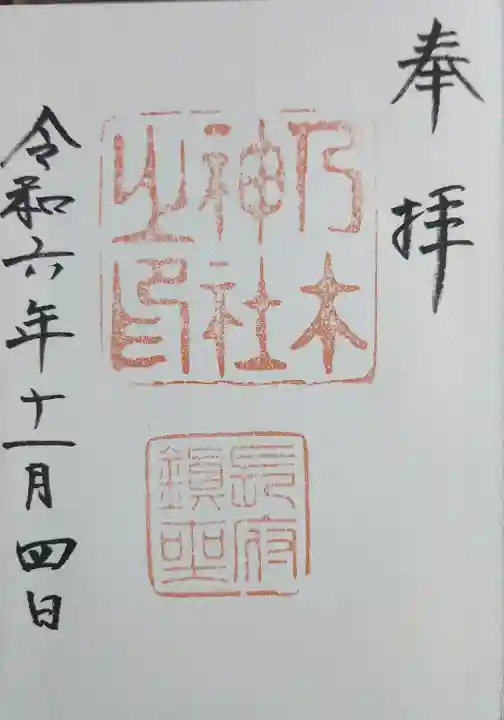 奉拝
乃木
神社
之印
長府
鎮坐
令和六年十一月四日